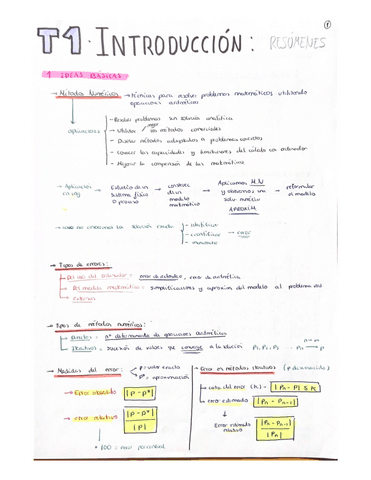 1
T1. INTRODUCCIÓN: RESÚMENES
1 IDEAS BÁSICAS
→ Métodos Numéricos → Técnicas para resolver problemas matemáticos utilizando
operaciones aritméticas
Aplicaciones
- Resolver problemas sin solución analítica
- Utilizar mejor los métodos comerciales
- Diseñar métodos adaptados a problemas concretos
- Conocer las capacidades y limitaciones del cálculo con ordenador
- Mejorar la comprensión de las matemáticas
→ Aplicación en ing → Estudio de un sistema físico o proceso → construir de un modelo matemático → Aplicamos M.N y obtenemos una solu. numérica APROXIM. → reformular el modelo
→ no conocemos la solución exacta
- analítica
- científica → error
→ Tipos de errores:
Del uso del ordenador = error de redondeo, error de aritmética
Del modelo matemático = simplificaciones y aproxim del modelo al problema real
→ Tipos de métodos numéricos:
Directos: nº determinado de operaciones aritméticas
Iterativos: sucesión de valores que converge a la solución P₁, P₂, P₃ ... Pₙ → P
→ Medidas del error:
p = valor exacto
p* = aproximación
→ Error absoluto |p - p*|
→ error relativo |p - p*| / |p|
* 100 = error porcentual
→ Error en métodos iterativos (p desconocido)
→ cota del error (k) = |Pₙ - P| ≤ k
→ error estimado = |Pₙ - Pₙ₋₁|
Error estimado relativo |Pₙ - Pₙ₋₁| / |Pₙ|